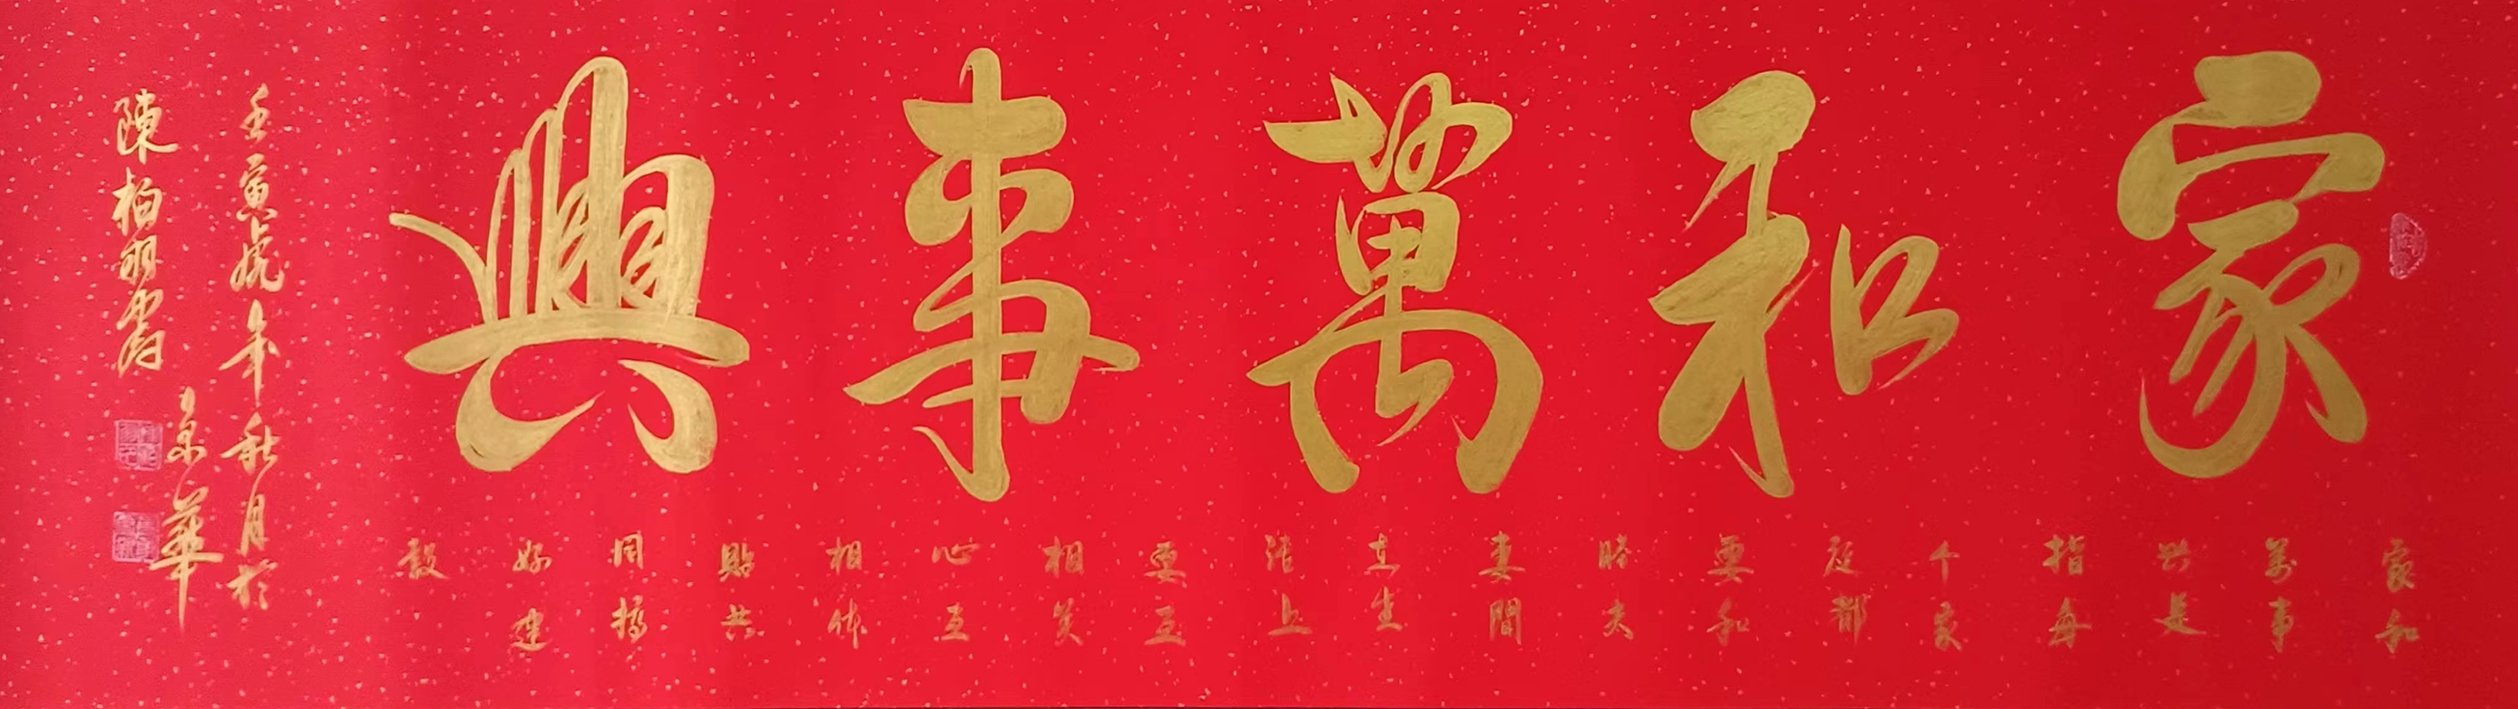 家和萬事興
家和
萬事
興是
指每
个家
庭都
要和
睦夫
妻間
在生
活上
要互
相关
心互
相体
貼共
同搞
好建
設
壬寅虎年秋月於
京華
陳柏